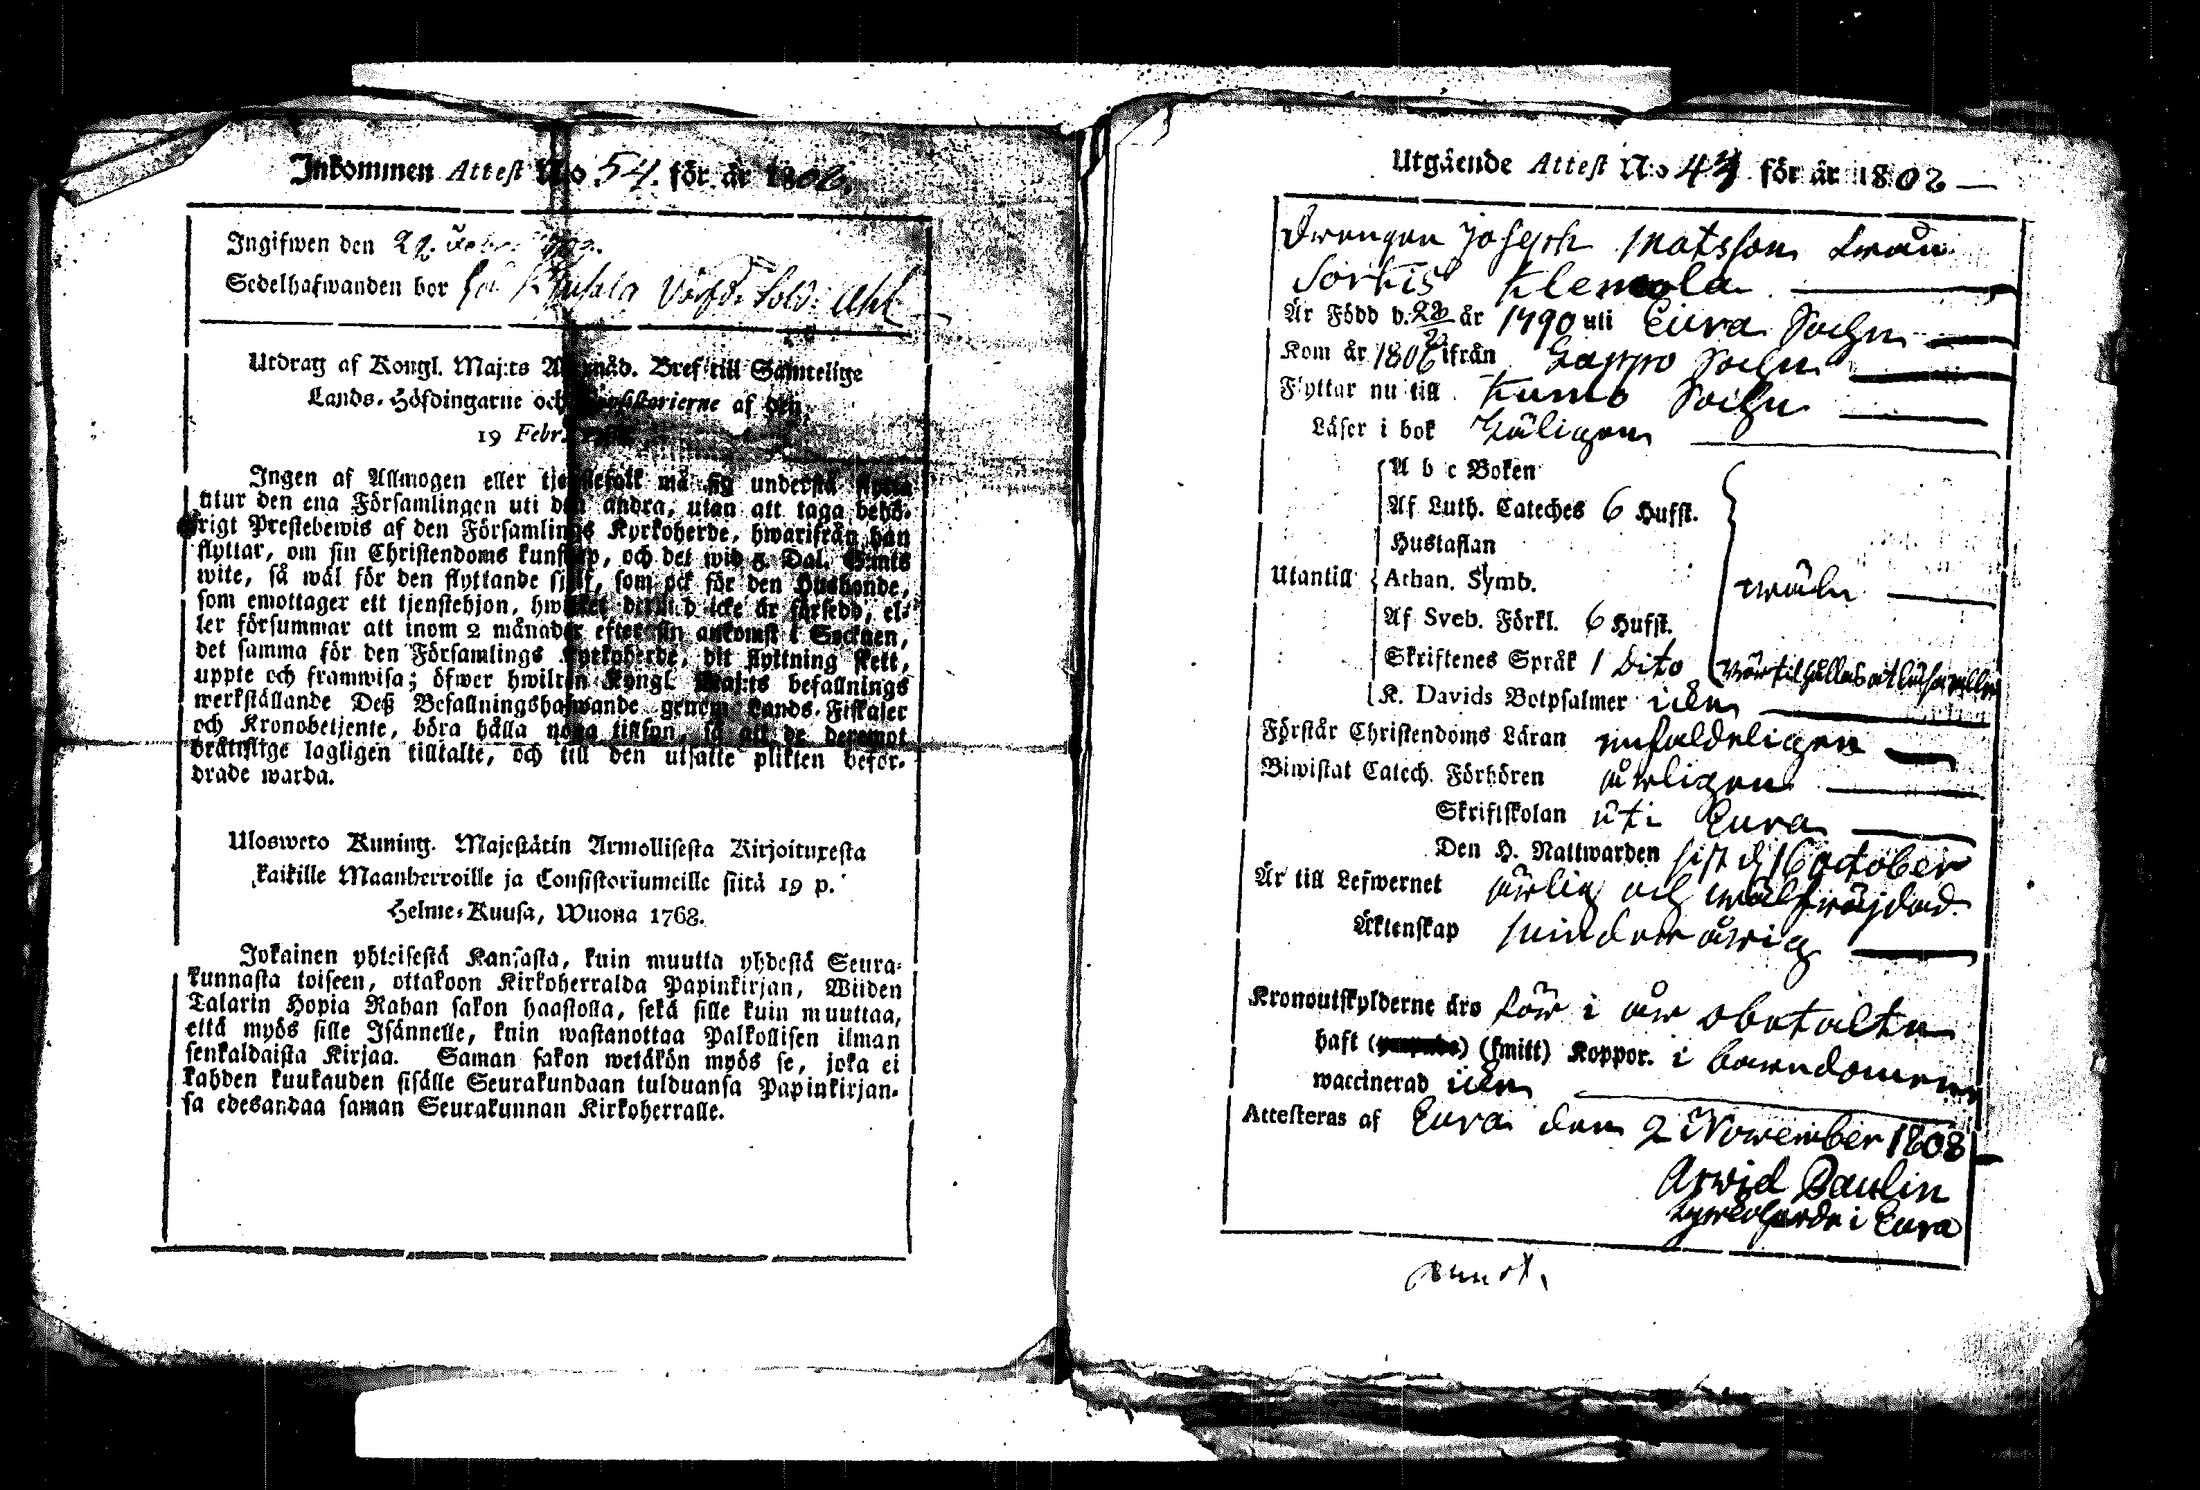 Inkommen Attest No 54. för år 1806.
Ingifwen den 22
Sedelhafwanden bor Sold: Ahl
Utdrag af Kongl. Maj:ts Allmånåd. Bref till Samtelige
Lands-Höfdingarne och Consistorierne af den
19 Febr.
Ingen af Allmogen eller tjenstefolk må sig understå flytta
utur den ena Församlingen uti den andra, utan att taga behö-
rigt Prestebewis af den Församlings Kyrkoherde, hwarifrån han
flyttar, om sin Christendoms kunskap, och det wid 5. Dal. S:mts
wite, så wäl för den flyttande sjelf, som ock för den Husbonde,
som emottager ett tjenstehjon, hwilket dermed icke är försedd, el-
ler försummar att inom 2 månader efter sin ankomst i Socknen,
det samma för den Församlings Kyrkoherde, dit flyttning skett,
uppte och framwisa; öfwer hwilken Kongl. Maj:ts befallnings
werkställande Deß Befallningshafwande genom Lands-Fiskaler
och Kronobetjente, böra hålla noga tillsyn, så att de deremot
bråttslige lagligen tilltalte, och till den utsatte plikten beför-
drade warda.
Ulosweto Kuning. Majestätin Armollisesta Kirjoituxesta
kaikille Maanherroille ja Consistoriumeille siitä 19 p.
Helme-Kuusa, Wuona 1768.
Jokainen yhteisestä Kansasta, kuin muutta yhdestä Seura-
kunnasta toiseen, ottakoon Kirkoherralda Papinkirjan, Wiiden
Talarin Hopia Rahan sakon haastolla, sekä sille kuin muuttaa,
että myös sille Isännelle, kuin wastanottaa Palkollisen ilman
senkaldaista Kirjaa. Saman sakon wetäkön myös se, joka ei
kahden kuukauden sisälle Seurakundaan tulduansa Papinkirjan-
sa edesandaa saman Seurakunnan Kirkoherralle.
Utgående Attest N:o 44 för år 1808
Drengen Joseph Matsson från
Sorkis Klemola
Är Född d. 22 år 1790 uti Eura Sochn
Kom år 1806 ifrån Lappo Sochn
Flyttar nu till Kumo Sochn
Läser i bok
Utantill
A b c Boken
Af Luth. Cateches 6 Hufst.
Hustaflan
Athan. Symb.
Af Sveb. Förkl. 6 Hufst.
Skriftenes Språk 1 Dito
K. Davids Botpsalmer
wäl
Förstår Christendoms Läran enfaldeligen
Biwistat Catech. Förhören årligen
Skriftskolan uti Eura
Den H. Nattwarden sist d 16 October
Är till Lefwernet ärlig och wälfräjdad
Äktenskap minderårig
Kronoutskylderne äro för i år obetalte
haft (smitt) Koppor. i barndomen
waccinerad
Attesteras af Eura den 2 November 1808
Arwid Paulin
Kyrkoherde i Eura